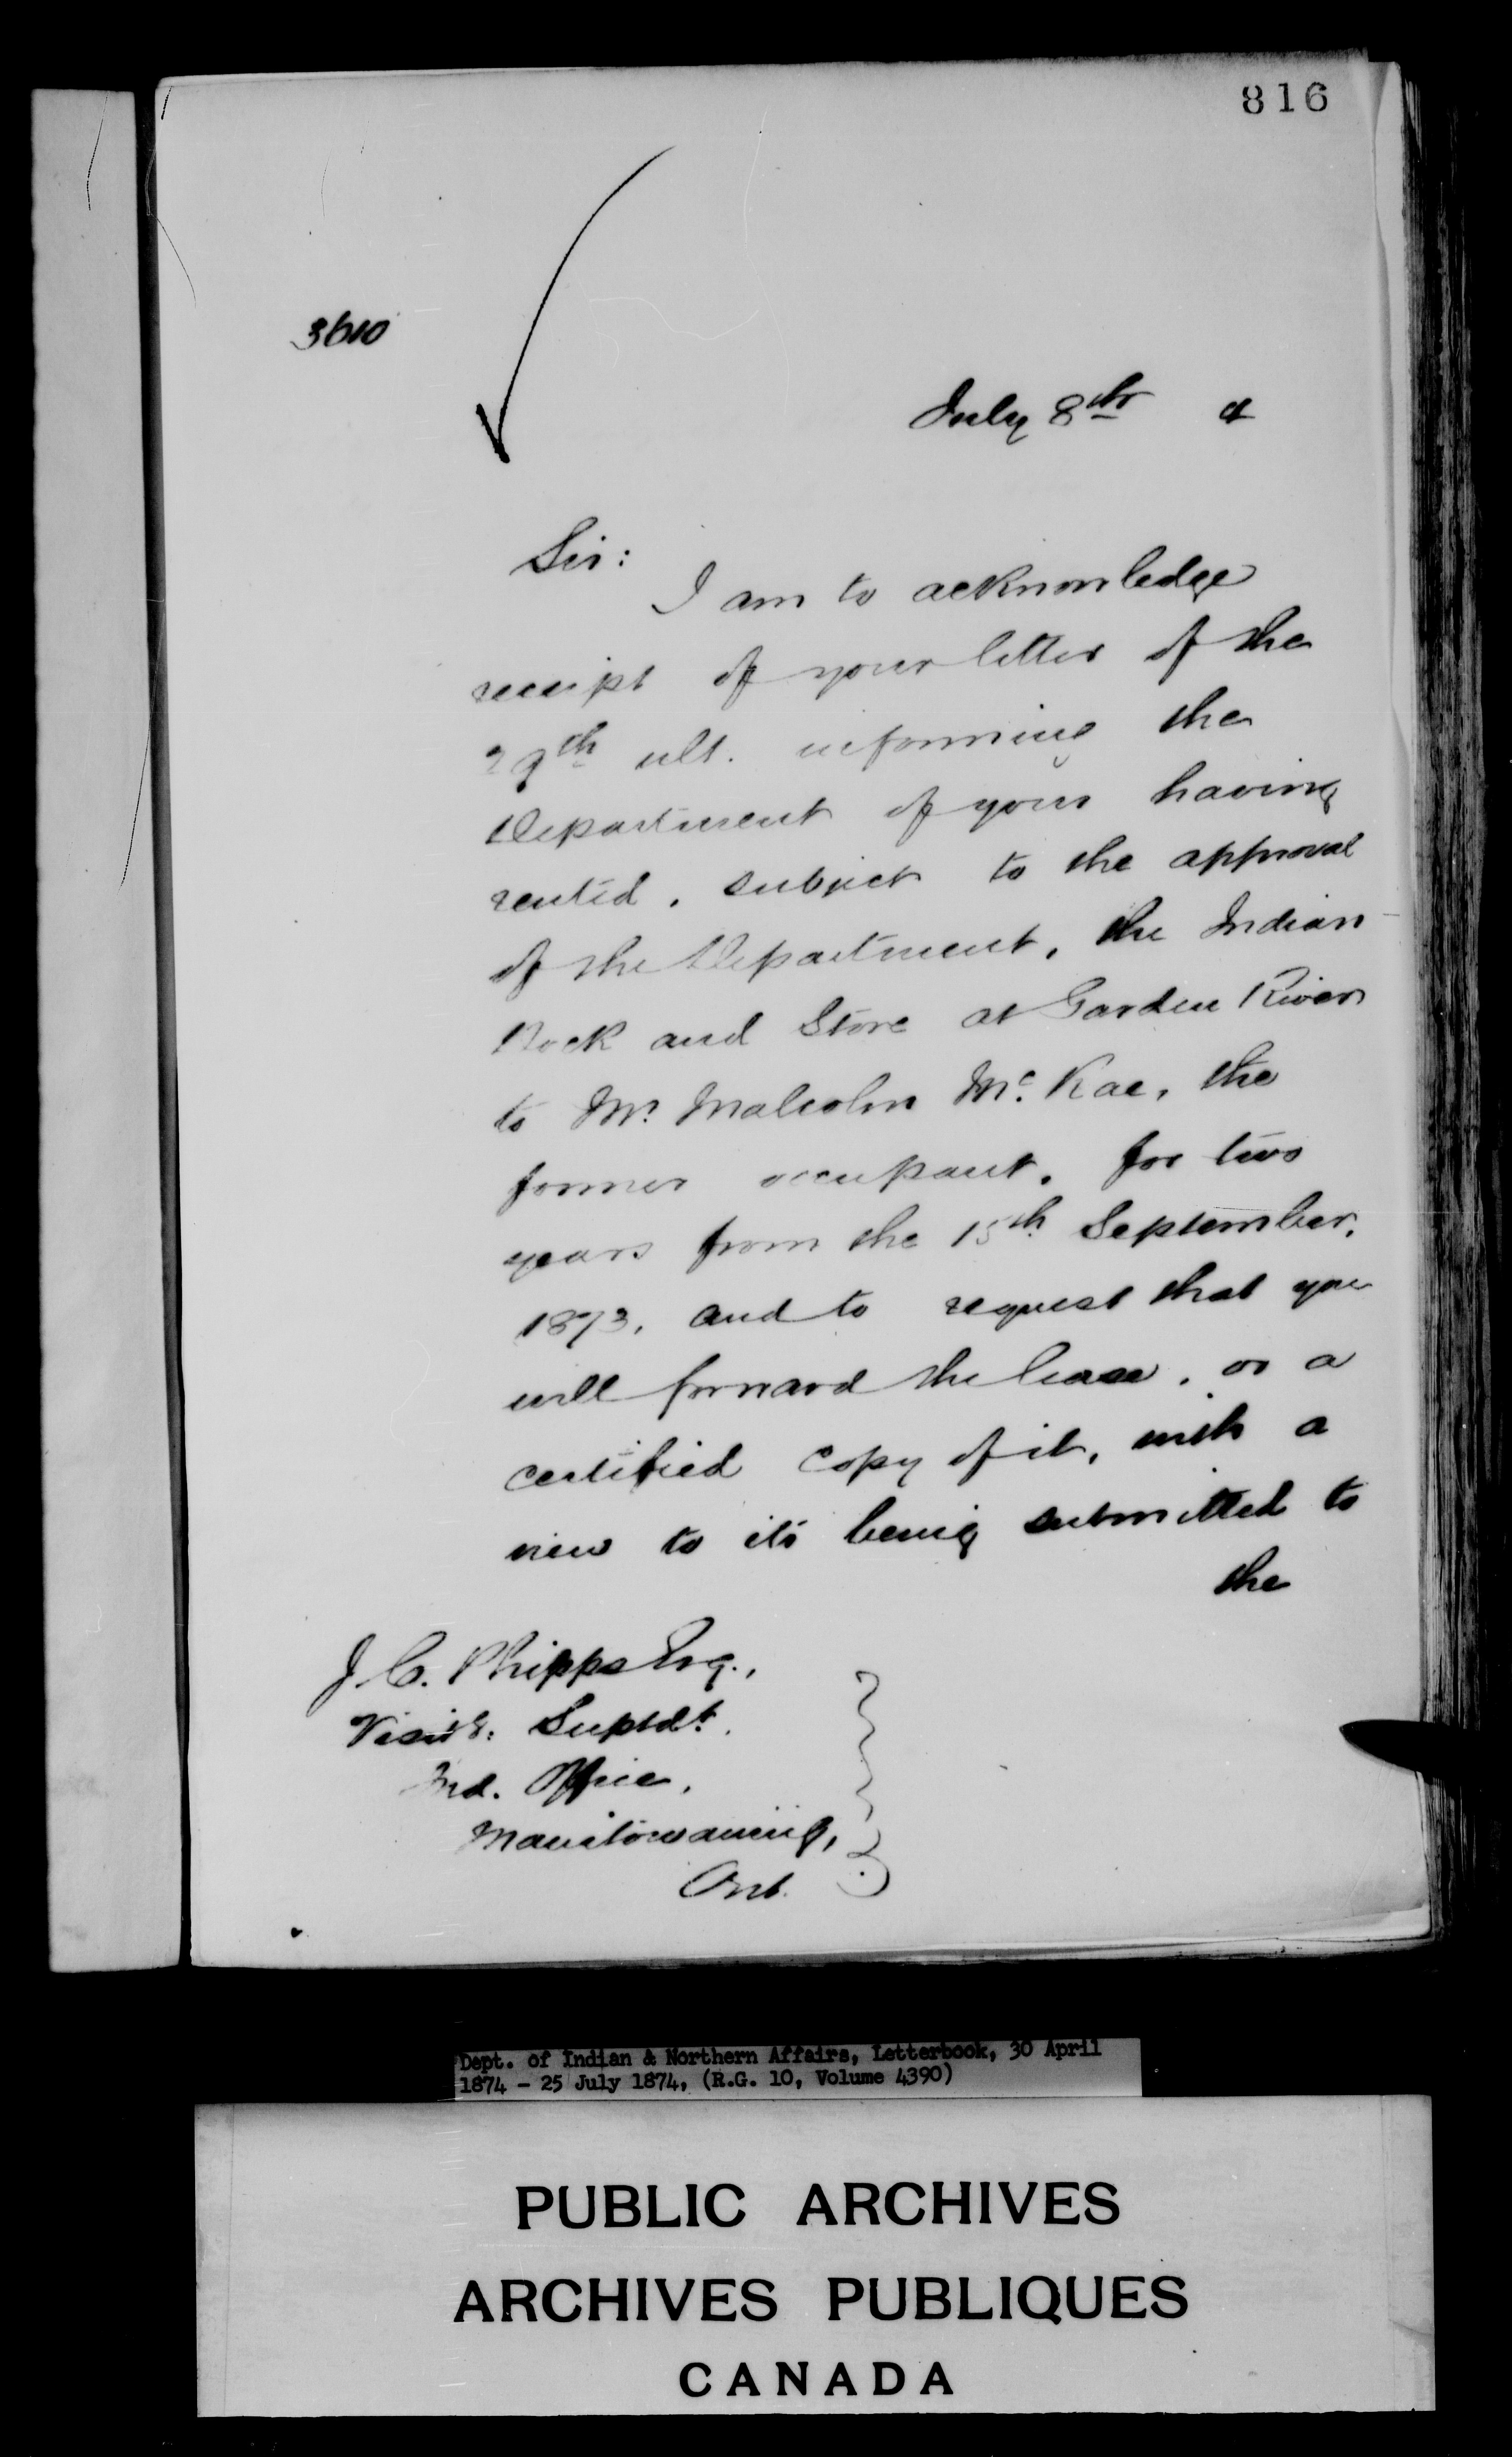 816
3610
July 8th 4
Sir:
I am to acknowledge
receipt of your letter of the
29th ult. informing the
Department of your having
rented, subject to the approval
of the Department, the Indian
Dock and Store at Garden River
to Mr. Malcolm Mc. Kae, the
former occupant, for two
years from the 15th September,
1873, and to request that you
will forward the lease, or a
certified copy of it, with a
view to its being submitted to
the
J. C. Phipps Esq.,
Visitg. Suptdt.
Ind. Office,
Manitowaning,
Ont.
Dept. of Indian & Northern Affairs, Letterbook, 30 April
1874 - 25 July 1874, (R.G. 10, Volume 4390)
PUBLIC ARCHIVES
ARCHIVES PUBLIQUES
CANADA